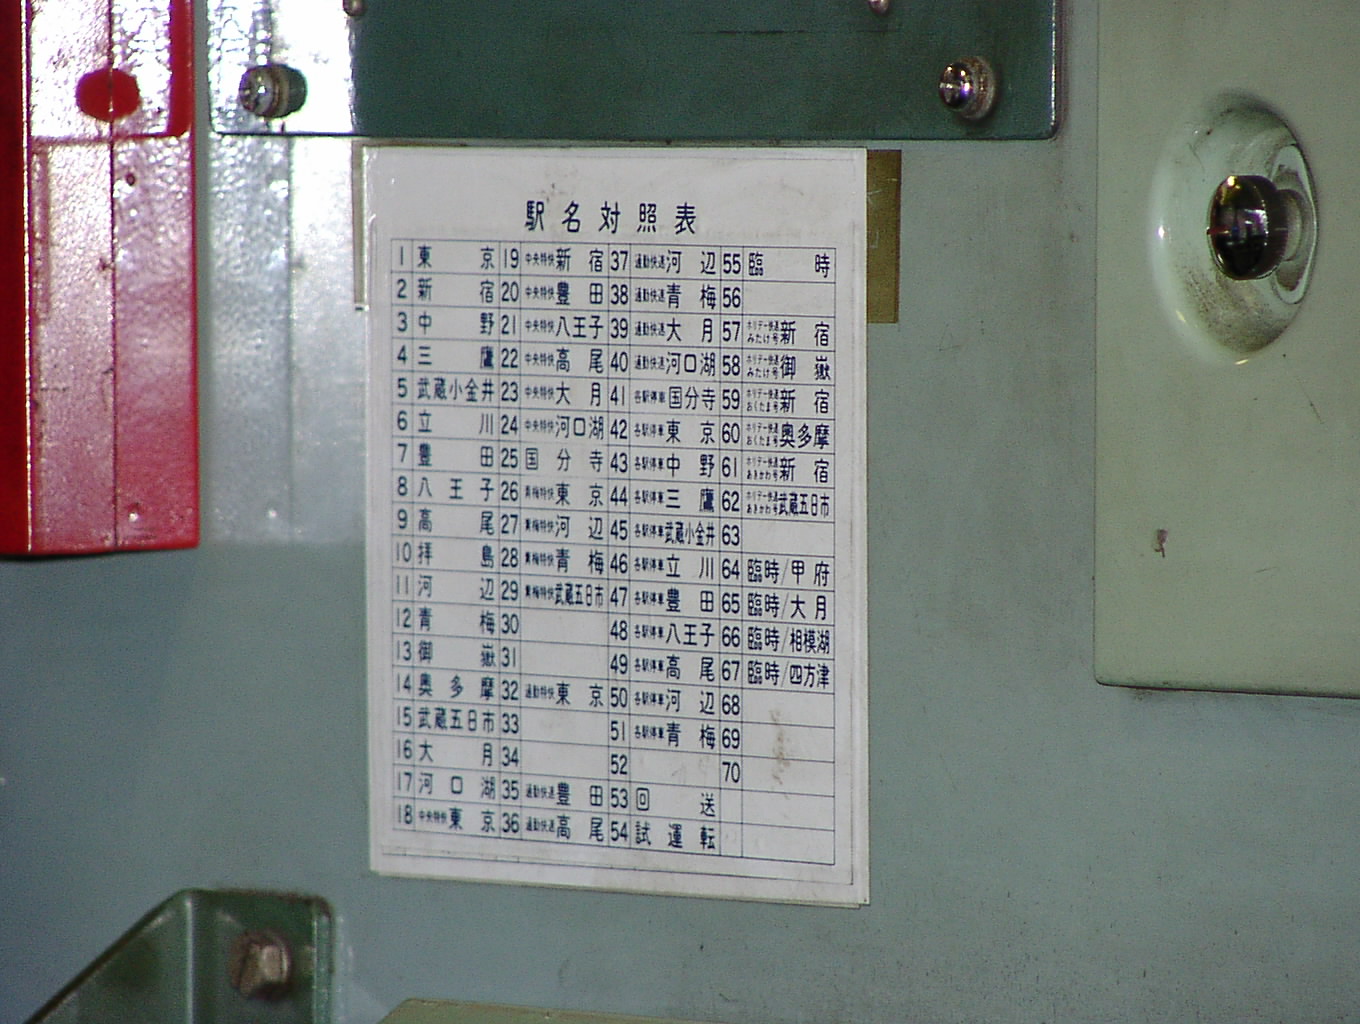 駅名対照表
1 東京 19 中央特快 新宿 37 通勤快速 河辺 55 臨時
2 新宿 20 中央特快 豊田 38 通勤快速 青梅 56
3 中野 21 中央特快 八王子 39 通勤快速 大月 57 ホリデー快速みたけ号 新宿
4 三鷹 22 中央特快 高尾 40 通勤快速 河口湖 58 ホリデー快速みたけ号 御嶽
5 武蔵小金井 23 中央特快 大月 41 各駅停車 国分寺 59 ホリデー快速おくたま号 新宿
6 立川 24 中央特快 河口湖 42 各駅停車 東京 60 ホリデー快速おくたま号 奥多摩
7 豊田 25 国分寺 43 各駅停車 中野 61 ホリデー快速あきかわ号 新宿
8 八王子 26 青梅特快 東京 44 各駅停車 三鷹 62 ホリデー快速あきかわ号 武蔵五日市
9 高尾 27 青梅特快 河辺 45 各駅停車 武蔵小金井 63
10 拝島 28 青梅特快 青梅 46 各駅停車 立川 64 臨時/甲府
11 河辺 29 青梅特快 武蔵五日市 47 各駅停車 豊田 65 臨時/大月
12 青梅 30 48 各駅停車 八王子 66 臨時/相模湖
13 御嶽 31 49 各駅停車 高尾 67 臨時/四方津
14 奥多摩 32 通勤特快 東京 50 各駅停車 河辺 68
15 武蔵五日市 33 51 各駅停車 青梅 69
16 大月 34 52 70
17 河口湖 35 通勤快速 豊田 53 回送
18 中央特快 東京 36 通勤快速 高尾 54 試運転